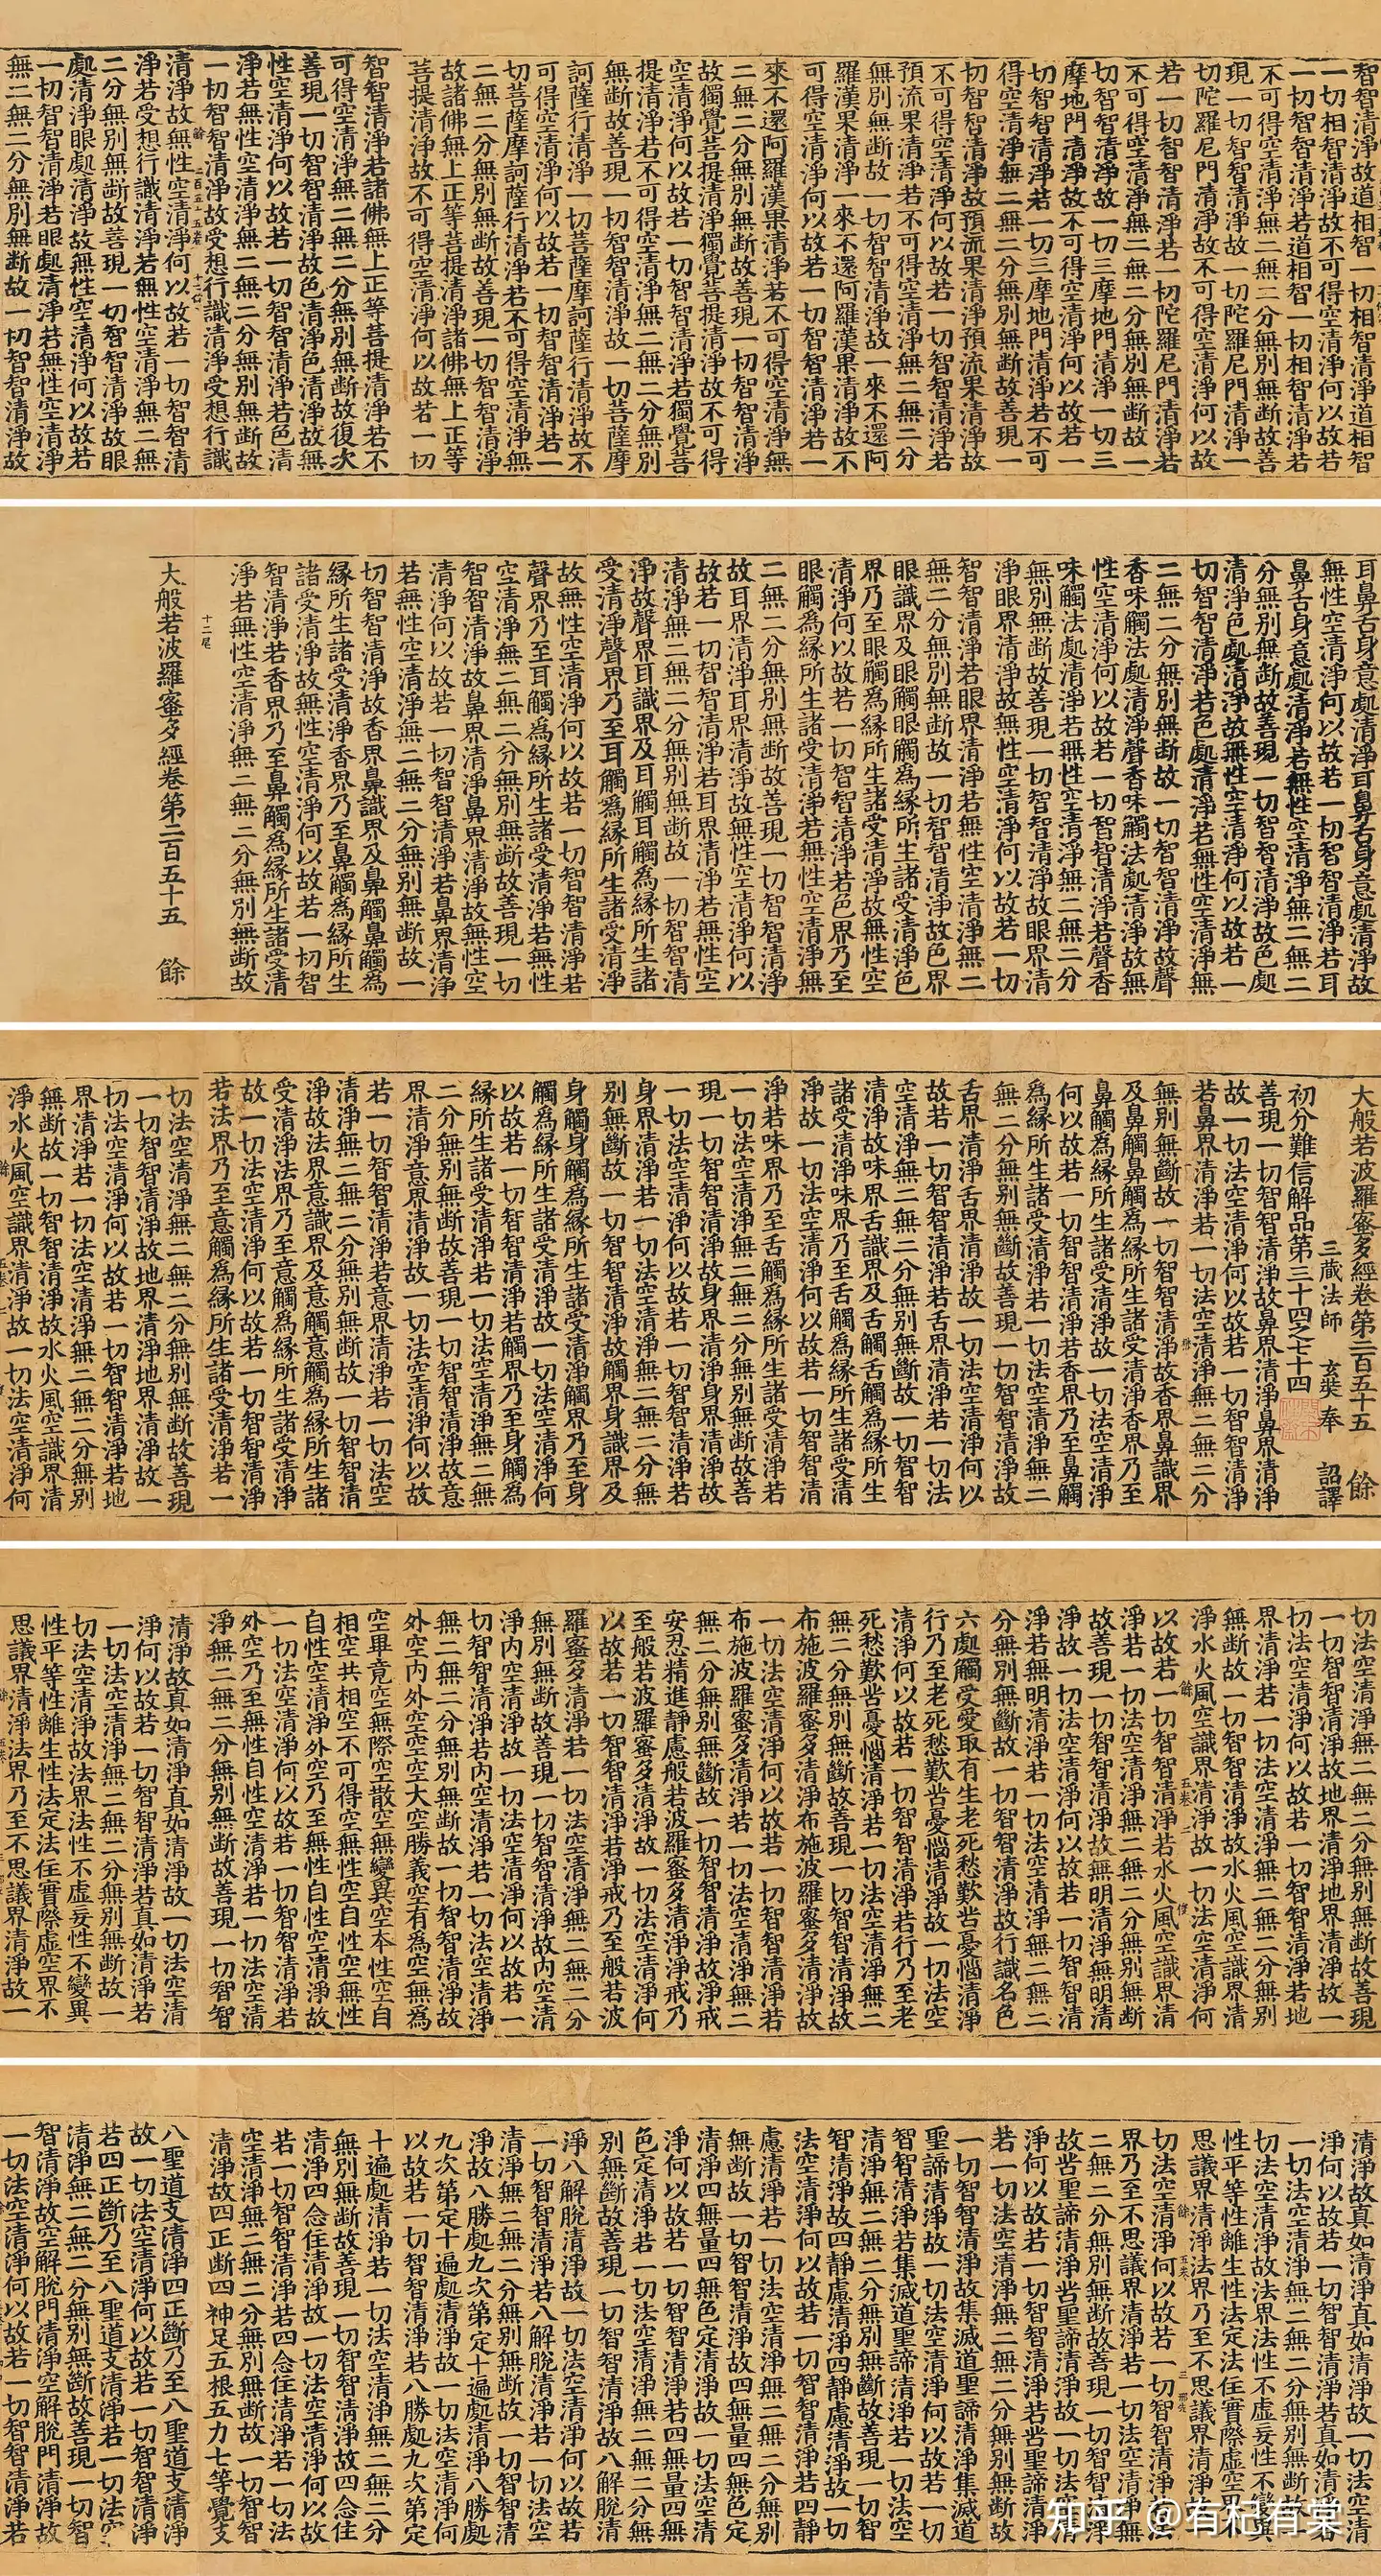 智智清淨故道相智一切相智清淨道相智
一切相智清淨故不可得空清淨何以故若
一切智智清淨若道相智一切相智清淨若
不可得空清淨無二無二分無別無断故善
現一切智智清淨故一切陀羅尼門清淨一
切陀羅尼門清淨故不可得空清淨何以故
若一切智智清淨若一切陀羅尼門清淨若
不可得空清淨無二無二分無別無断故一
切智智清淨故一切三摩地門清淨一切三
摩地門清淨故不可得空清淨何以故若一
切智智清淨若一切三摩地門清淨若不可
得空清淨無二無二分無別無断故善現一
切智智清淨故預流果清淨預流果清淨故
不可得空清淨何以故若一切智智清淨若
預流果清淨若不可得空清淨無二無二分
無別無断故一切智智清淨故一來不還阿
羅漢果清淨一來不還阿羅漢果清淨故不
可得空清淨何以故若一切智智清淨若一
來不還阿羅漢果清淨若不可得空清淨無
二無二分無別無断故善現一切智智清淨
故獨覺菩提清淨獨覺菩提清淨故不可得
空清淨何以故若一切智智清淨若獨覺菩
提清淨若不可得空清淨無二無二分無別
無断故善現一切智智清淨故一切菩薩摩
訶薩行清淨一切菩薩摩訶薩行清淨故不
可得空清淨何以故若一切智智清淨若一
切菩薩摩訶薩行清淨若不可得空清淨無
二無二分無別無断故善現一切智智清淨
故諸佛無上正等菩提清淨諸佛無上正等
菩提清淨故不可得空清淨何以故若一切
智智清淨若諸佛無上正等菩提清淨若不
可得空清淨無二無二分無別無断故復次
善現一切智智清淨故色清淨色清淨故無
性空清淨何以故若一切智智清淨若色清
淨若無性空清淨無二無二分無別無断故
一切智智清淨故受想行識清淨受想行識
清淨故無性空清淨何以故若一切智智清
淨若受想行識清淨若無性空清淨無二無
二分無別無断故善現一切智智清淨故眼
處清淨眼處清淨故無性空清淨何以故若
一切智智清淨若眼處清淨若無性空清淨
無二無二分無別無断故一切智智清淨故
耳鼻舌身意處清淨耳鼻舌身意處清淨故
無性空清淨何以故若一切智智清淨若耳
鼻舌身意處清淨若無性空清淨無二無二
分無別無断故善現一切智智清淨故色處
清淨色處清淨故無性空清淨何以故若一
切智智清淨若色處清淨若無性空清淨無
二無二分無別無断故一切智智清淨故聲
香味觸法處清淨聲香味觸法處清淨故無
性空清淨何以故若一切智智清淨若聲香
味觸法處清淨若無性空清淨無二無二分
無別無断故善現一切智智清淨故眼界清
淨眼界清淨故無性空清淨何以故若一切
智智清淨若眼界清淨若無性空清淨無二
無二分無別無断故一切智智清淨故色界
眼識界及眼觸眼觸為緣所生諸受清淨色
界乃至眼觸為緣所生諸受清淨故無性空
清淨何以故若一切智智清淨若色界乃至
眼觸為緣所生諸受清淨若無性空清淨無
二無二分無別無断故善現一切智智清淨
故耳界清淨耳界清淨故無性空清淨何以
故若一切智智清淨若耳界清淨若無性空
清淨無二無二分無別無断故一切智智清
淨故聲界耳識界及耳觸耳觸為緣所生諸
受清淨聲界乃至耳觸為緣所生諸受清淨
故無性空清淨何以故若一切智智清淨若
聲界乃至耳觸為緣所生諸受清淨若無性
空清淨無二無二分無別無断故善現一切
智智清淨故鼻界清淨鼻界清淨故無性空
清淨何以故若一切智智清淨若鼻界清淨
若無性空清淨無二無二分無別無断故一
切智智清淨故香界鼻識界及鼻觸鼻觸為
緣所生諸受清淨香界乃至鼻觸為緣所生
諸受清淨故無性空清淨何以故若一切智
智清淨若香界乃至鼻觸為緣所生諸受清
淨若無性空清淨無二無二分無別無断故
十二尾
大般若波羅蜜多經卷第二百五十五 餘
大般若波羅蜜多經卷第二百五十五 餘
三藏法師 玄奘奉 詔譯
初分難信解品第三十四之七十四
善現一切智智清淨故鼻界清淨鼻界清淨
故一切法空清淨何以故若一切智智清淨
若鼻界清淨若一切法空清淨無二無二分
無別無斷故一切智智清淨故香界鼻識界
及鼻觸鼻觸為緣所生諸受清淨香界乃至
鼻觸為緣所生諸受清淨故一切法空清淨
何以故若一切智智清淨若香界乃至鼻觸
為緣所生諸受清淨若一切法空清淨無二
無二分無別無斷故善現一切智智清淨故
舌界清淨舌界清淨故一切法空清淨何以
故若一切智智清淨若舌界清淨若一切法
空清淨無二無二分無別無斷故一切智智
清淨故味界舌識界及舌觸舌觸為緣所生
諸受清淨味界乃至舌觸為緣所生諸受清
淨故一切法空清淨何以故若一切智智清
淨若味界乃至舌觸為緣所生諸受清淨若
一切法空清淨無二無二分無別無断故善
現一切智智清淨故身界清淨身界清淨故
一切法空清淨何以故若一切智智清淨若
身界清淨若一切法空清淨無二無二分無
別無斷故一切智智清淨故觸界身識界及
身觸身觸為緣所生諸受清淨觸界乃至身
觸為緣所生諸受清淨故一切法空清淨何
以故若一切智智清淨若觸界乃至身觸為
緣所生諸受清淨若一切法空清淨無二無
二分無別無断故善現一切智智清淨故意
界清淨意界清淨故一切法空清淨何以故
若一切智智清淨若意界清淨若一切法空
清淨無二無二分無別無断故一切智智清
淨故法界意識界及意觸意觸為緣所生諸
受清淨法界乃至意觸為緣所生諸受清淨
故一切法空清淨何以故若一切智智清淨
若法界乃至意觸為緣所生諸受清淨若一
切法空清淨無二無二分無別無断故善現
一切智智清淨故地界清淨地界清淨故一
切法空清淨何以故若一切智智清淨若地
界清淨若一切法空清淨無二無二分無別
無断故一切智智清淨故水火風空識界清
淨水火風空識界清淨故一切法空清淨何
切法空清淨無二無二分無別無断故善現
一切智智清淨故地界清淨地界清淨故一
切法空清淨何以故若一切智智清淨若地
界清淨若一切法空清淨無二無二分無別
無断故一切智智清淨故水火風空識界清
淨水火風空識界清淨故一切法空清淨何
以故若一切智智清淨若水火風空識界清
淨若一切法空清淨無二無二分無別無断
故善現一切智智清淨故無明清淨無明清
淨故一切法空清淨何以故若一切智智清
淨若無明清淨若一切法空清淨無二無二
分無別無斷故一切智智清淨故行識名色
六處觸受愛取有生老死愁歎苦憂惱清淨
行乃至老死愁歎苦憂惱清淨故一切法空
清淨何以故若一切智智清淨若行乃至老
死愁歎苦憂惱清淨若一切法空清淨無二
無二分無別無斷故善現一切智智清淨故
布施波羅蜜多清淨布施波羅蜜多清淨故
一切法空清淨何以故若一切智智清淨若
布施波羅蜜多清淨若一切法空清淨無二
無二分無別無斷故一切智智清淨故淨戒
安忍精進靜慮般若波羅蜜多清淨淨戒乃
至般若波羅蜜多清淨故一切法空清淨何
以故若一切智智清淨若淨戒乃至般若波
羅蜜多清淨若一切法空清淨無二無二分
無別無断故善現一切智智清淨故內空清
淨內空清淨故一切法空清淨何以故若一
切智智清淨若內空清淨若一切法空清淨
無二無二分無別無断故一切智智清淨故
外空內外空空空大空勝義空有為空無為
空畢竟空無際空散空無變異空本性空自
相空共相空不可得空無性空自性空無性
自性空清淨外空乃至無性自性空清淨故
一切法空清淨何以故若一切智智清淨若
外空乃至無性自性空清淨若一切法空清
淨無二無二分無別無断故善現一切智智
清淨故真如清淨真如清淨故一切法空清
淨何以故若一切智智清淨若真如清淨若
一切法空清淨無二無二分無別無断故一
切法空清淨故法界法性不虛妄性不變異
性平等性離生性法定法住實際虛空界不
思議界清淨法界乃至不思議界清淨故一
清淨故真如清淨真如清淨故一切法空清
淨何以故若一切智智清淨若真如清淨若
一切法空清淨無二無二分無別無断故一
切法空清淨故法界法性不虛妄性不變異
性平等性離生性法定法住實際虛空界不
思議界清淨法界乃至不思議界清淨故一
切法空清淨何以故若一切智智清淨若法
界乃至不思議界清淨若一切法空清淨無
二無二分無別無断故善現一切智智清淨
故苦聖諦清淨苦聖諦清淨故一切法空清
淨何以故若一切智智清淨若苦聖諦清淨
若一切法空清淨無二無二分無別無断故
一切智智清淨故集滅道聖諦清淨集滅道
聖諦清淨故一切法空清淨何以故若一切
智智清淨若集滅道聖諦清淨若一切法空
清淨無二無二分無別無斷故善現一切智
智清淨故四靜慮清淨四靜慮清淨故一切
法空清淨何以故若一切智智清淨若四靜
慮清淨若一切法空清淨無二無二分無別
無断故一切智智清淨故四無量四無色定
清淨四無量四無色定清淨故一切法空清
淨何以故若一切智智清淨若四無量四無
色定清淨若一切法空清淨無二無二分無
別無斷故善現一切智智清淨故八解脫清
淨八解脫清淨故一切法空清淨何以故若
一切智智清淨若八解脫清淨若一切法空
清淨無二無二分無別無断故一切智智清
淨故八勝處九次第定十遍處清淨八勝處
九次第定十遍處清淨故一切法空清淨何
以故若一切智智清淨若八勝處九次第定
十遍處清淨若一切法空清淨無二無二分
無別無断故善現一切智智清淨故四念住
清淨四念住清淨故一切法空清淨何以故
若一切智智清淨若四念住清淨若一切法
空清淨無二無二分無別無断故一切智智
清淨故四正断四神足五根五力七等覺支
八聖道支清淨四正斷乃至八聖道支清淨
故一切法空清淨何以故若一切智智清淨
若四正斷乃至八聖道支清淨若一切法空
清淨無二無二分無別無斷故善現一切智
智清淨故空解脫門清淨空解脫門清淨故
一切法空清淨何以故若一切智智清淨若
知乎 @有杞有棠